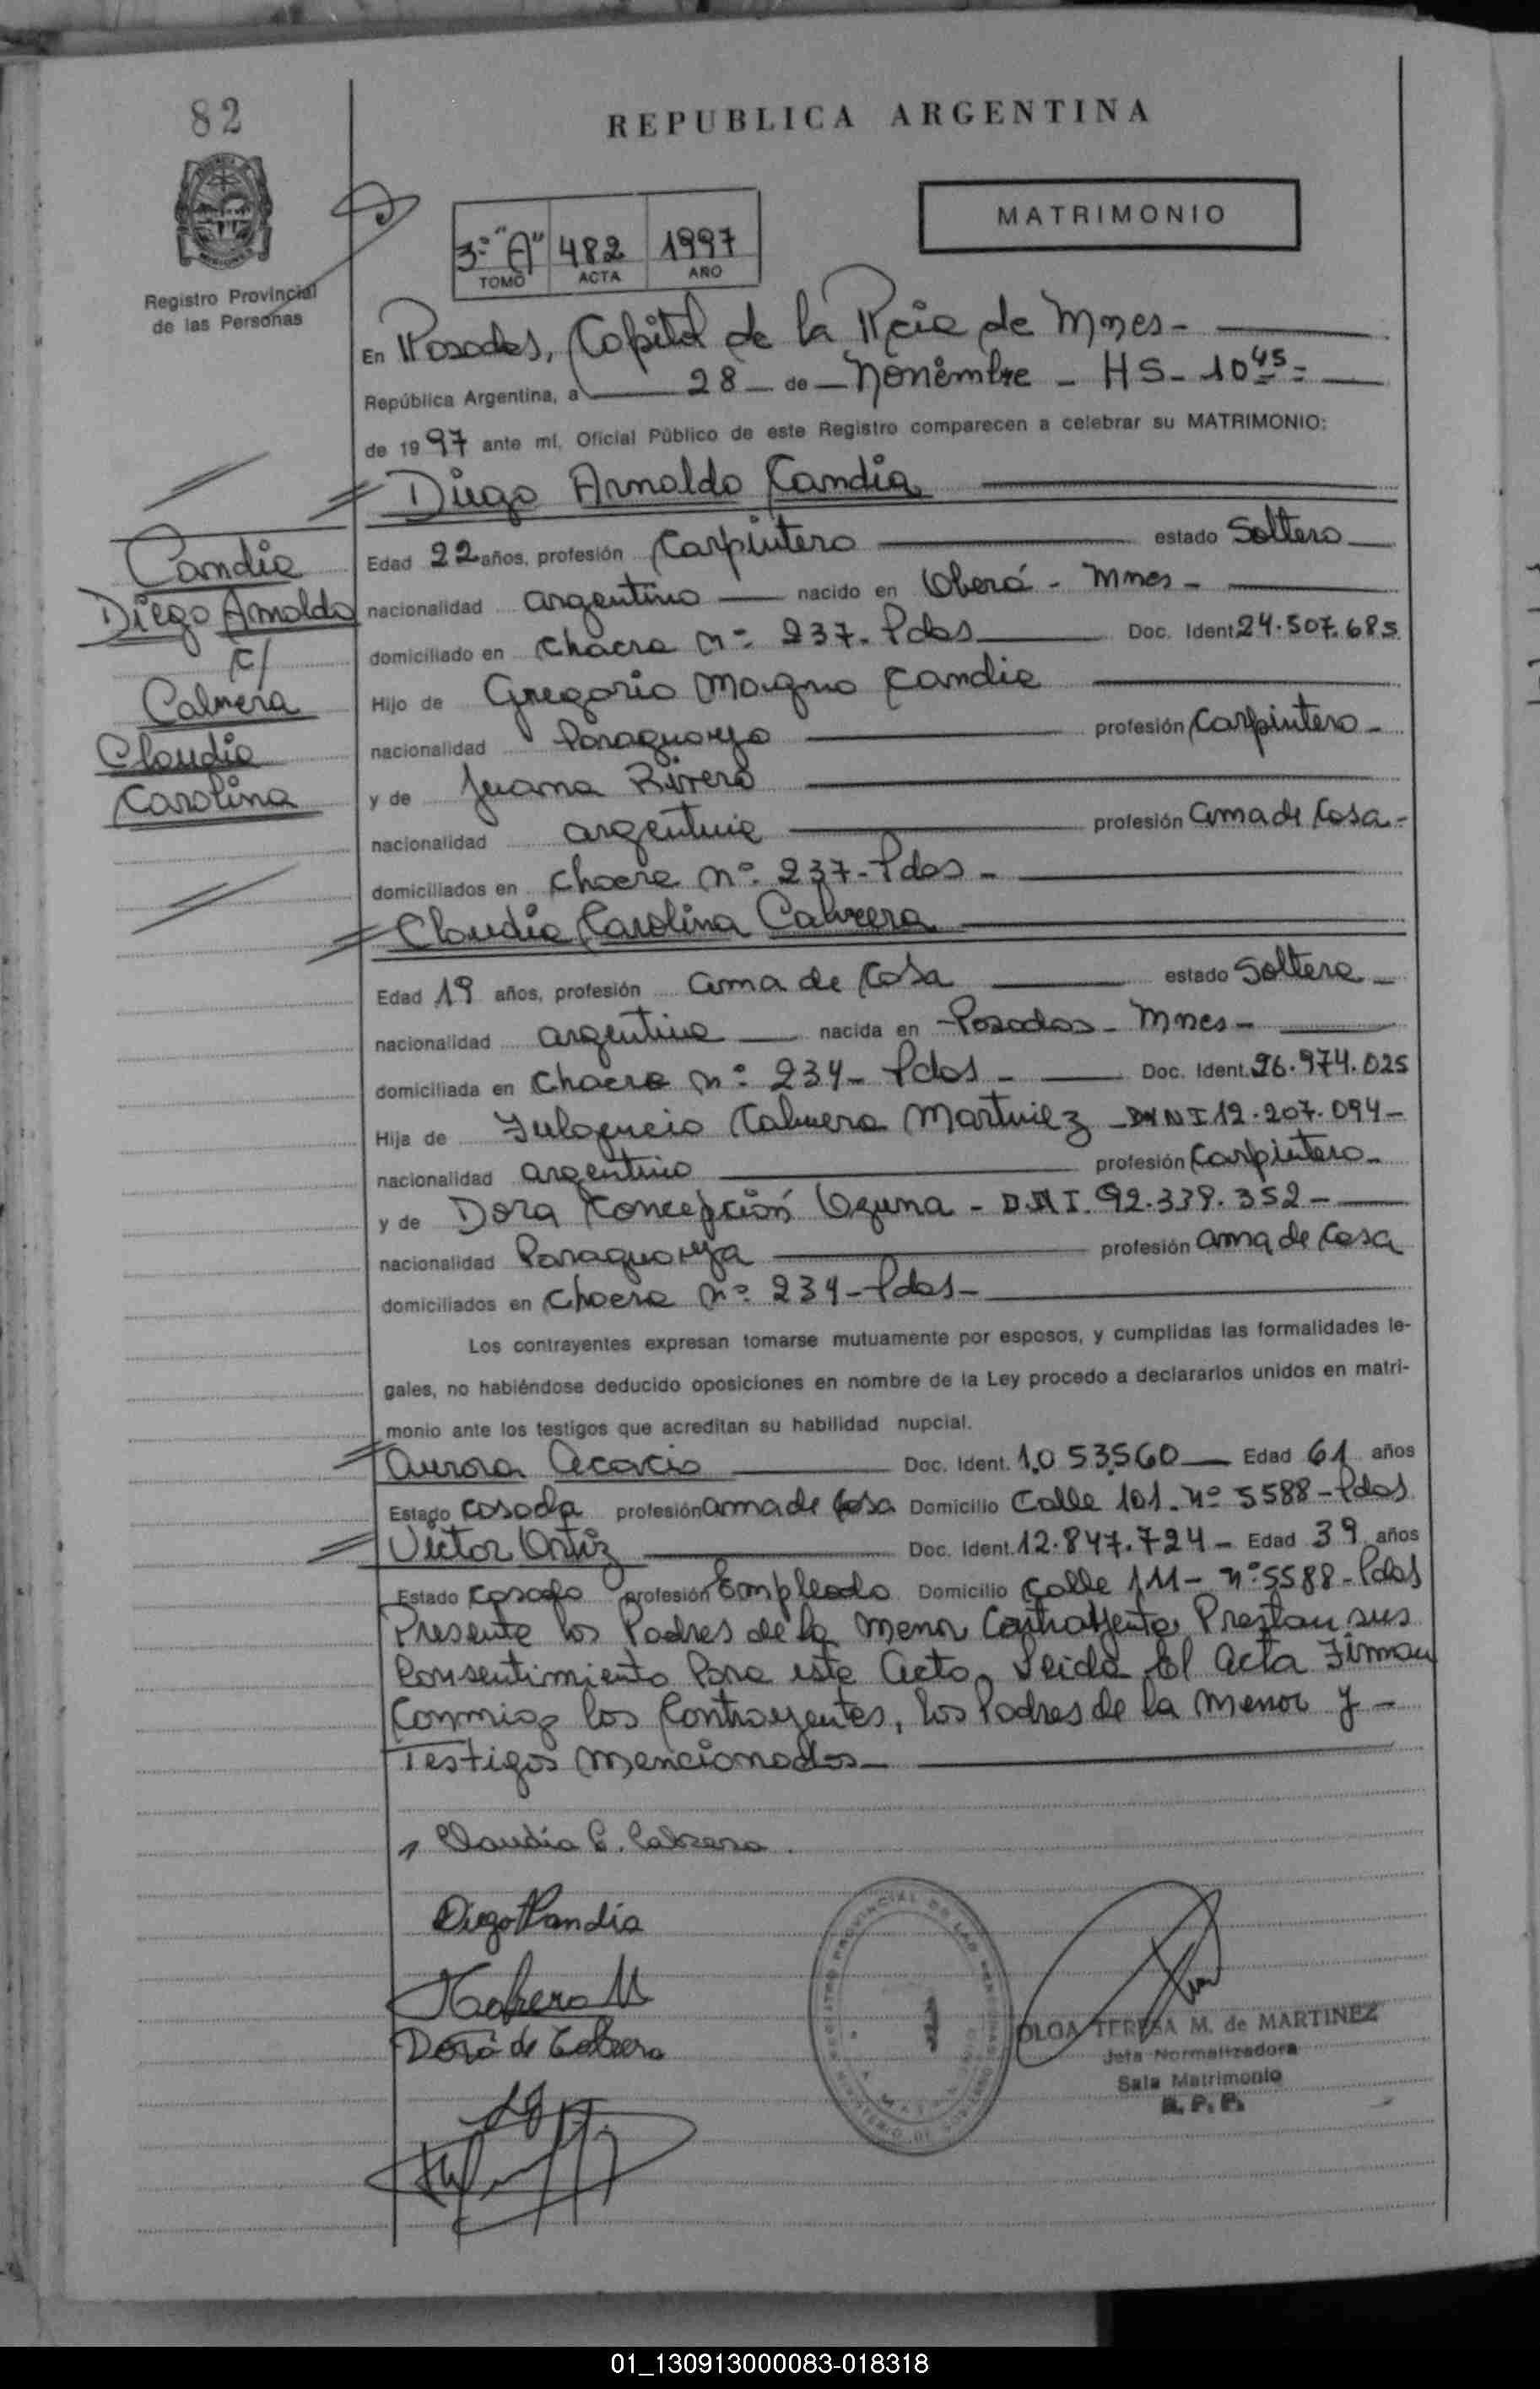 82
REPUBLICA ARGENTINA
MATRIMONIO
3º "A" 482 1997
TOMO ACTA AÑO
Registro Provincial
de las Personas
En Posadas, Capital de la Pcia de Mnes-
República Argentina, a 28 - de - Noviembre - HS - 10 45 =
de 1997 ante mí, Oficial Público de este Registro comparecen a celebrar su MATRIMONIO:
Diego Arnaldo Candia
Candia
Diego Arnaldo
c/
Cabrera
Claudia
Carolina
Edad 22 años, profesión Carpintero estado Soltero
nacionalidad argentino nacido en Oberá - Mnes -
domiciliado en Chacra Nº 237- Pdas Doc. Ident. 24.507.685
Hijo de Gregorio Magno Candia
nacionalidad Paraguayo profesión Carpintero -
y de Juana Rivero
nacionalidad argentina profesión ama de Casa -
domiciliados en Chacra Nº 237- Pdas -
Claudia Carolina Cabrera
Edad 19 años, profesión ama de Casa estado Soltera -
nacionalidad argentina nacida en Posadas - Mnes -
domiciliada en Chacra Nº 234- Pdas - Doc. Ident. 26.974.025
Hija de Cabrera Martinez - DNI 12.207.094 -
nacionalidad argentino profesión Carpintero -
y de Dora Concepción - D.N.I. 92.339.352 -
nacionalidad Paraguaya profesión ama de Casa
domiciliados en Chacra Nº 234- Pdas -
Los contrayentes expresan tomarse mutuamente por esposos, y cumplidas las formalidades le-
gales, no habiéndose deducido oposiciones en nombre de la Ley procedo a declararlos unidos en matri-
monio ante los testigos que acreditan su habilidad nupcial.
Aurora Acacio Doc. Ident. 1.053.560 Edad 61 años
Estado casada profesión ama de Casa Domicilio Calle 101. Nº 5588 - Pdas
Victor Ortiz Doc. Ident. 12.847.724 - Edad 39 años
Estado casado profesión Empleado Domicilio Calle 111 - nº 5588 - Pdas
Presente los Padres de la menor Contrayente Prestan sus
Consentimiento Para este Acto, Leida El acta Firman
Conmigo los Contrayentes, los Padres de la menor y -
Testigos mencionados -
Claudia C. Cabrera
Diego Candia
Cabrera M
Dora de Cabrera
OLGA TERESA M. de MARTINEZ
Jefa Normalizadora
Sala Matrimonio
R. P. P.
01_130913000083-018318